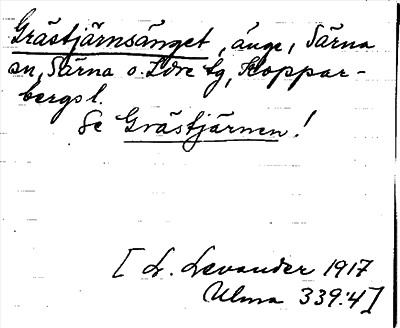 Grästjärnsänget, änge, Särna
sn, Särna o. Idre tg, Koppar-
bergs l.
Se Grästjärnen!
[L. Levander 1917
Ulma 339:4]